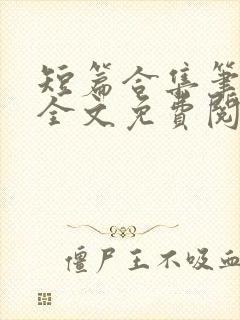 短篇合集筆
全文免費閱
僵尸王不吸血